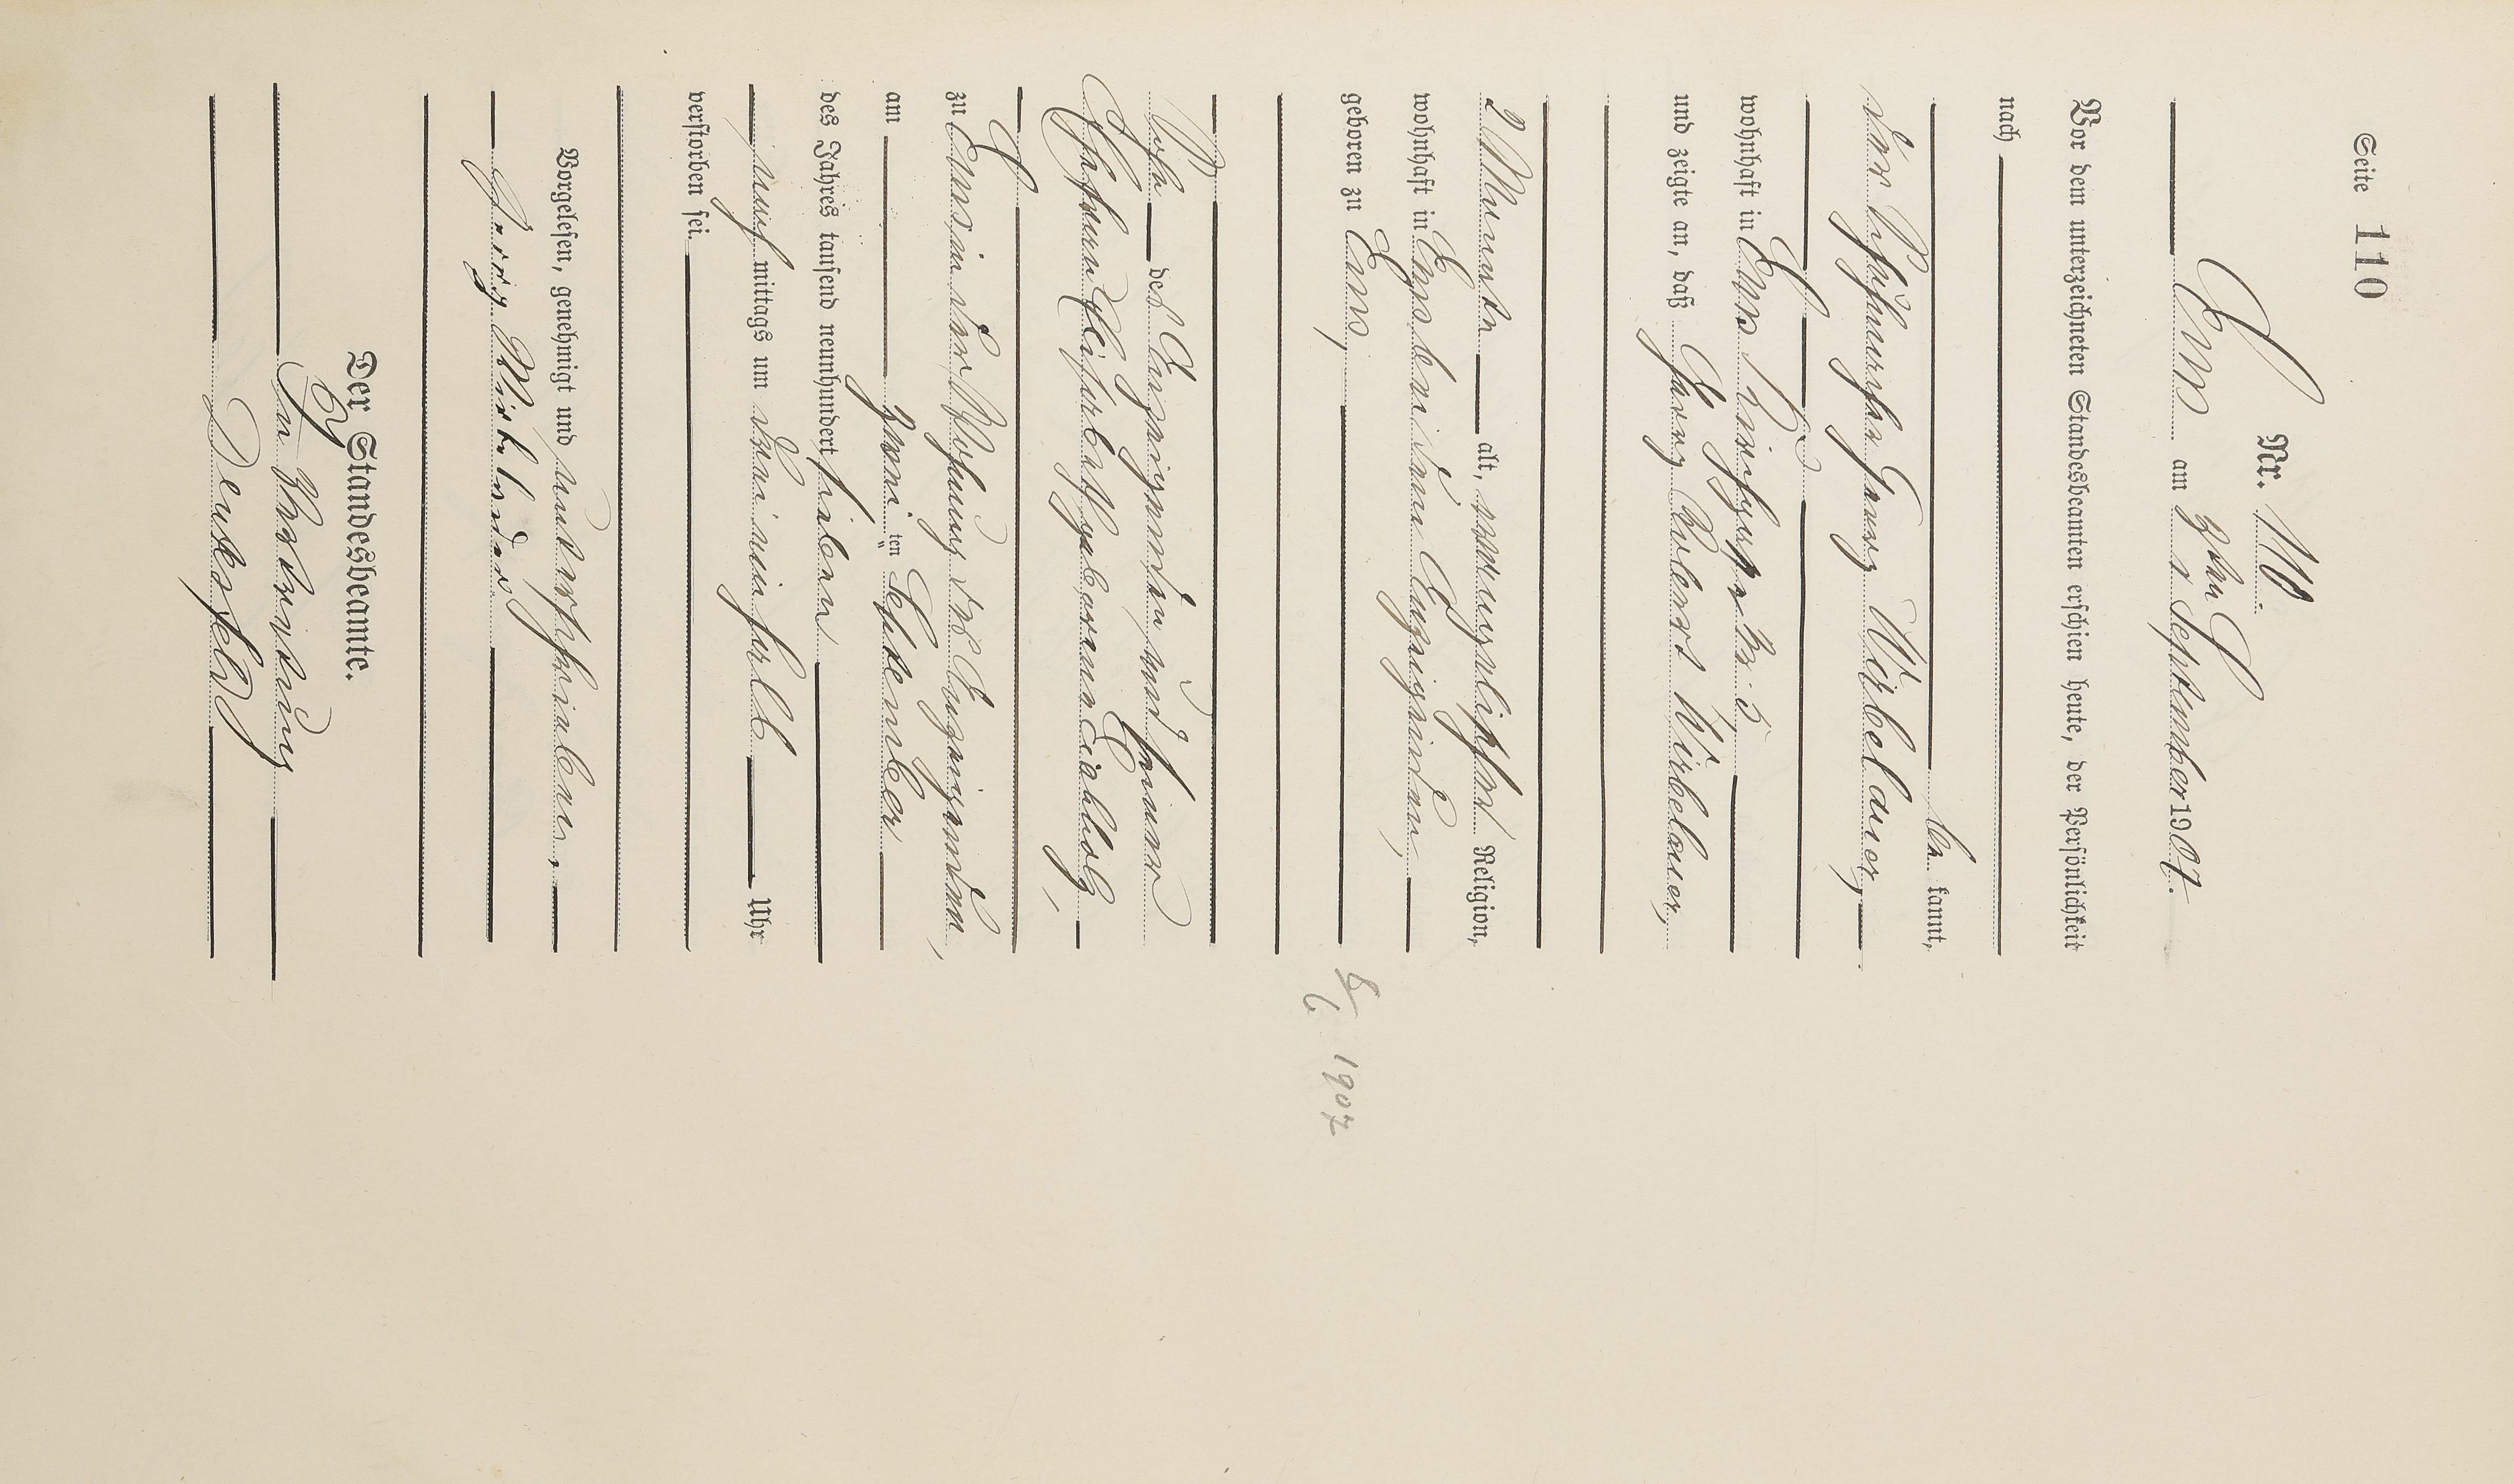 Seite 110
Nr. 110.
Ems am 2ten September 1907.
Vor dem unterzeichneten Standesbeamten erschien heute, der Persönlichkeit
nach
be kannt,
der Georg Wirbelauer,
wohnhaft in Ems Nr. 5,
und zeigte an, daß Georg Robert Wirbelauer,
2 Monate alt, evangelischer Religion,
wohnhaft in Ems bei dem Anzeigenden,
geboren zu Ems,
6/6 1907
Sohn des Anzeigenden und seiner
Ehefrau Elisabeth geborenen
zu Ems in der Wohnung des Anzeigenden,
am zweiten September
des Jahres tausend neunhundert sieben
nach mittags um drei ein halb Uhr
verstorben sei.
Vorgelesen, genehmigt und unterschrieben,
Georg Wirbelauer
Der Standesbeamte.
In Vertretung